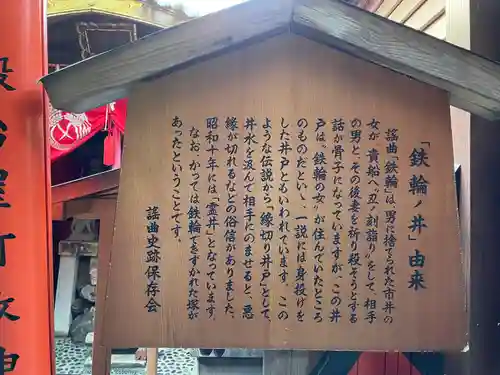 「鉄輪ノ井」由来
謡曲「鉄輪」は、男に捨てられた市井の
女が、貴船へ〝丑ノ刻詣り〟をして、相手
の男と、その後妻を呪い殺そうとする
話が骨子になっていますが、この井
戸は、〝鉄輪の女〟が住んでいたところ
のものだといゝ、一説には身投げを
した井戸ともいわれています。この
ような伝説から、「縁切り井戸」として、
井水を汲んで相手にのませると、悪
縁が切れるなどの俗信がありました。
昭和十年には「霊井」となっています。
なお、かつては鉄輪てをきずかれた塚が
あったということです。
謡曲史跡保存会